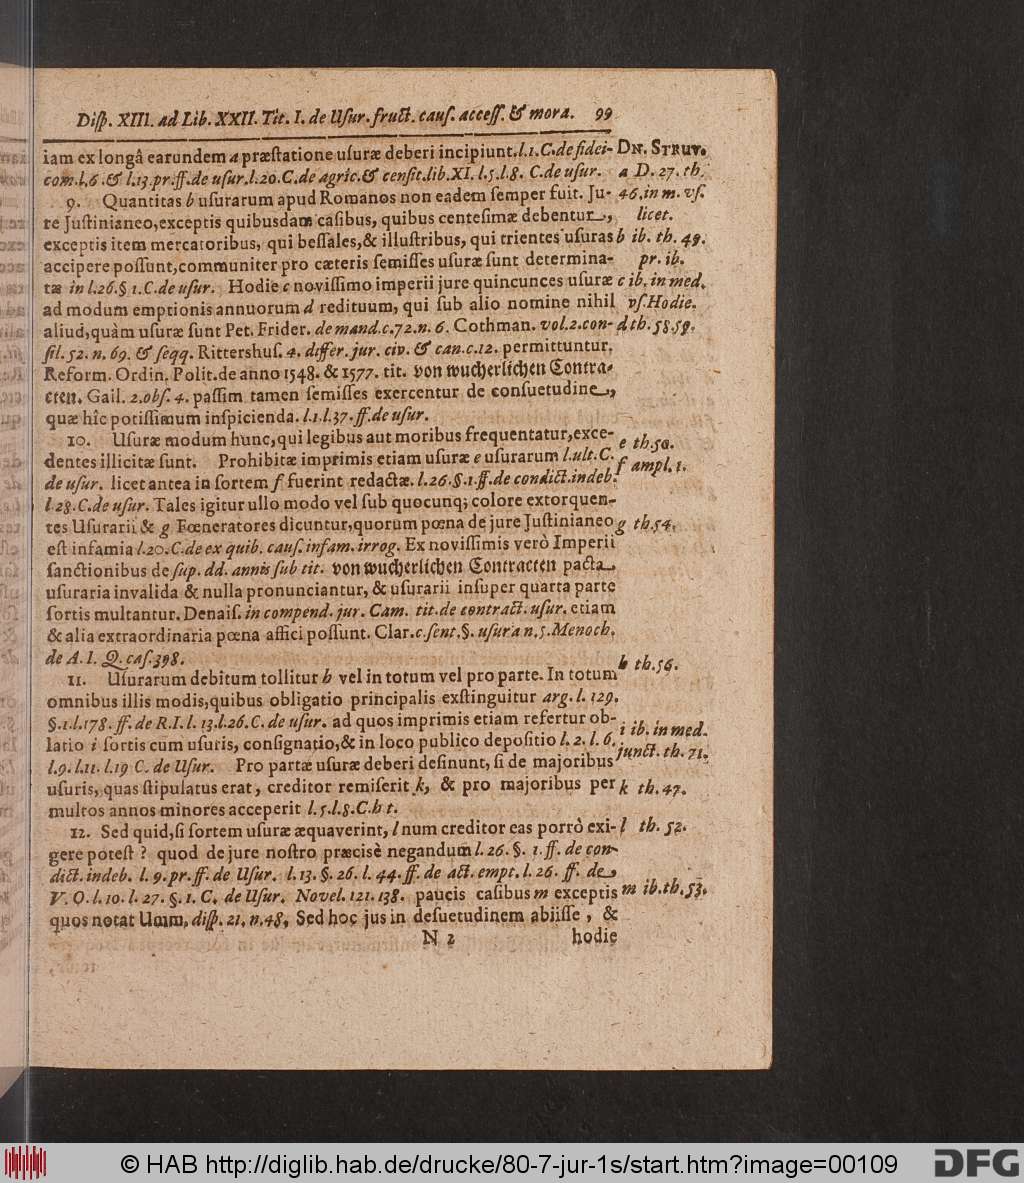 Diſp. XIII. ad Lib. XXII. Tit. I. de Uſur. fruct. cauſ. acceſſ. & mora. 99
iam ex longâ earundem a præſtatione uſuræ deberi incipiunt. l.1. C. de fidei-
com. l.6. & l.13. pr. ff. de uſur. l.20. C. de agric. & cenſit. lib. XI. l.5. l.8. C. de uſur.
9. Quantitas b uſurarum apud Romanos non eadem ſemper fuit. Ju-
re Juſtinianeo, exceptis quibusdam caſibus, quibus centeſimæ debentur,
exceptis item mercatoribus, qui beſſales, & illuſtribus, qui trientes uſuras
accipere poſſunt, communiter pro cæteris ſemiſſes uſuræ ſunt determina-
tæ in l.26. § 1. C. de uſur. Hodie c noviſſimo imperii jure quincunces uſuræ
ad modum emptionis annuorum d redituum, qui ſub alio nomine nihil
aliud, quàm uſuræ ſunt Pet. Frider. de mand. c.72. n. 6. Cothman. vol. 2. con-
ſil. 52. n. 69. & ſeqq. Rittershuſ. 4. differ. jur. civ. & can. c.12. permittuntur.
Reform. Ordin. Polit. de anno 1548. & 1577. tit. von wucherlichen Contra-
cten. Gail. 2. obſ. 4. paſſim tamen ſemiſſes exercentur de conſuetudine,
quæ hîc potiſſimum inſpicienda. l.1. l.37. ff. de uſur.
10. Uſuræ modum hunc, qui legibus aut moribus frequentatur, exce-
dentes illicitæ ſunt. Prohibitæ imprimis etiam uſuræ e uſurarum l. ult. C.
de uſur. licet antea in ſortem f fuerint redactæ. l.26. §. 1. ff. de condict. indeb.
l.28. C. de uſur. Tales igitur ullo modo vel ſub quocunq; colore extorquen-
tes Uſurarii & g Fœneratores dicuntur, quorum pœna de jure Juſtinianeo
eſt infamia l.20. C. de ex quib. cauſ. infam. irrog. Ex noviſſimis verò Imperii
ſanctionibus de ſup. dd. annis ſub tit. von wucherlichen Contracten pacta
uſuraria invalida & nulla pronunciantur, & uſurarii inſuper quarta parte
ſortis multantur. Denaiſ. in compend. jur. Cam. tit. de contract. uſur. etiam
& alia extraordinaria pœna affici poſſunt. Clar. c. ſent. §. uſura n. 5. Menoch.
de A. I. Q. caſ. 398.
11. Uſurarum debitum tollitur h vel in totum vel pro parte. In totum
omnibus illis modis, quibus obligatio principalis exſtinguitur arg. l. 129.
§. 1. l.178. ff. de R. I. l. 13. l.26. C. de uſur. ad quos imprimis etiam refertur ob-
latio i ſortis cum uſuris, conſignatio, & in loco publico depoſitio l. 2. l. 6.
l.9. l.11. l.19 C. de Uſur. Pro parte uſuræ deberi deſinunt, ſi de majoribus
uſuris, quas ſtipulatus erat, creditor remiſerit k, & pro majoribus per
multos annos minores acceperit l. 5. l. 8. C. h t.
12. Sed quid, ſi ſortem uſuræ æquaverint, l num creditor eas porrò exi-
gere poteſt? quod de jure noſtro præcisè negandum l. 26. §. 1. ff. de con-
dict. indeb. l. 9. pr. ff. de Uſur. l. 13. §. 26. l. 44. ff. de act. empt. l. 26. ff. de
V. O. l. 10. l. 27. §. 1. C. de Uſur. Novel. 121. 138. paucis caſibus m exceptis
quos notat Umm. diſp. 21. n. 48. Sed hoc jus in deſuetudinem abiiſſe, &
N 2 hodie
DN. STRUV.
a D. 27. th.
46. in m. vſ.
licet.
b ib. th. 49.
pr. ib.
c ib. in med.
vſ. Hodie.
d th. 58. 59.
e th. 50.
f ampl. 1.
g th. 54.
h th. 56.
i ib. in med.
junct. th. 71.
k th. 47.
l th. 52.
m ib. th. 53.
© HAB http://diglib.hab.de/drucke/80-7-jur-1s/start.htm?image=00109
DFG